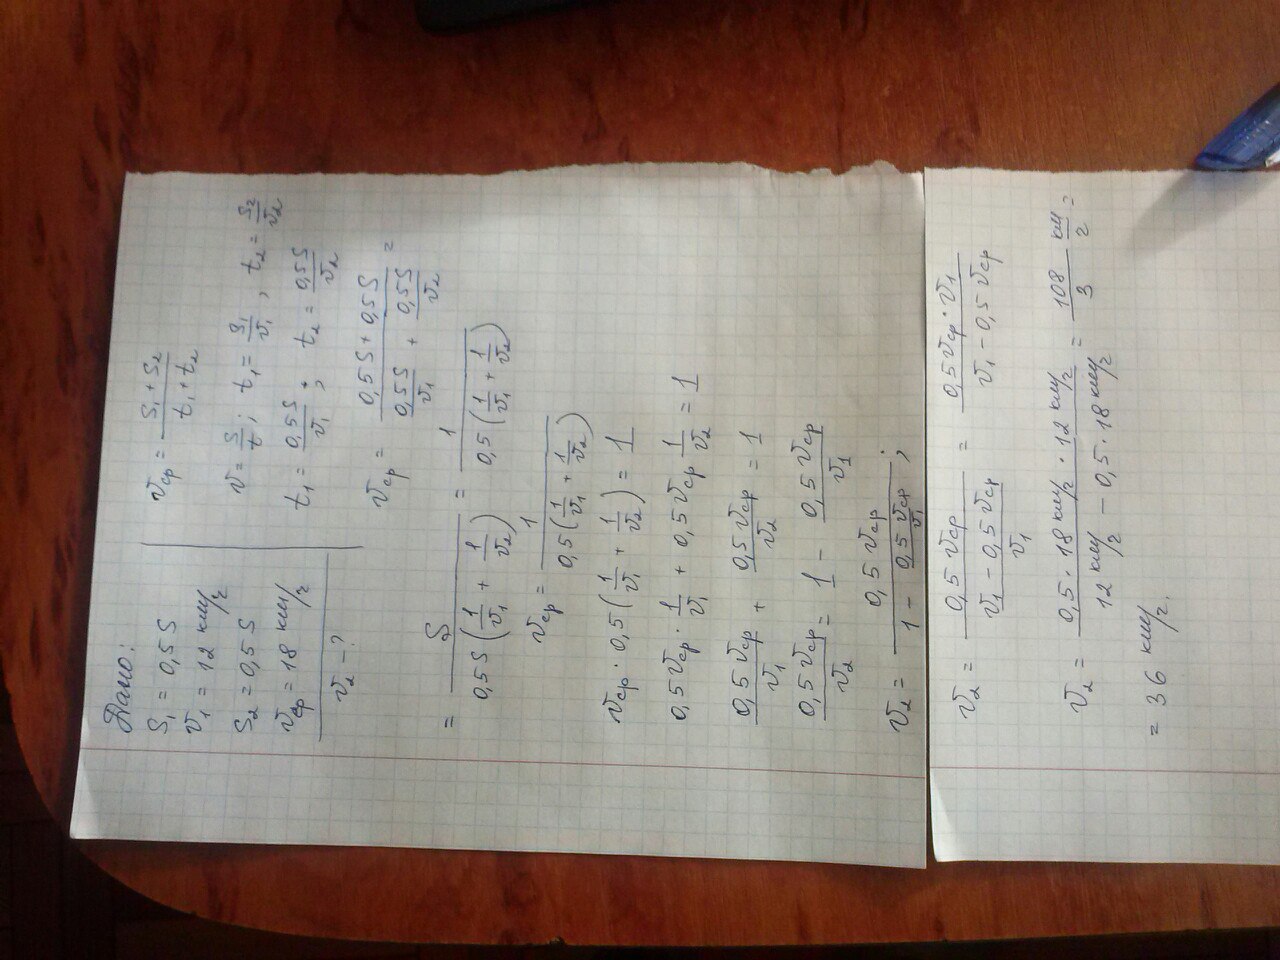 Дано:
S₁ = 0,5 S
v₁ = 12 км/г
S₂ = 0,5 S
vср = 18 км/г
v₂ - ?
vср = (S₁ + S₂)/(t₁ + t₂)
v = S/t ; t₁ = S₁/v₁ , t₂ = S₂/v₂
t₁ = 0,5S/v₁ , t₂ = 0,5S/v₂
vср = (0,5S + 0,5S)/(0,5S/v₁ + 0,5S/v₂) =
= S/(0,5S(1/v₁ + 1/v₂)) = 1/(0,5(1/v₁ + 1/v₂))
vср = 1/(0,5(1/v₁ + 1/v₂))
vср · 0,5(1/v₁ + 1/v₂) = 1
0,5vср · 1/v₁ + 0,5vср 1/v₂ = 1
0,5vср/v₁ + 0,5vср/v₂ = 1
0,5vср/v₂ = 1 - 0,5vср/v₁
v₂ = 0,5vср/(1 - 0,5vср/v₁) ;
v₂ = 0,5vср/((v₁ - 0,5vср)/v₁) = 0,5vср · v₁/(v₁ - 0,5vср)
v₂ = (0,5 · 18 км/г · 12 км/г)/(12 км/г - 0,5 · 18 км/г) = 108/3 км/г =
= 36 км/г.